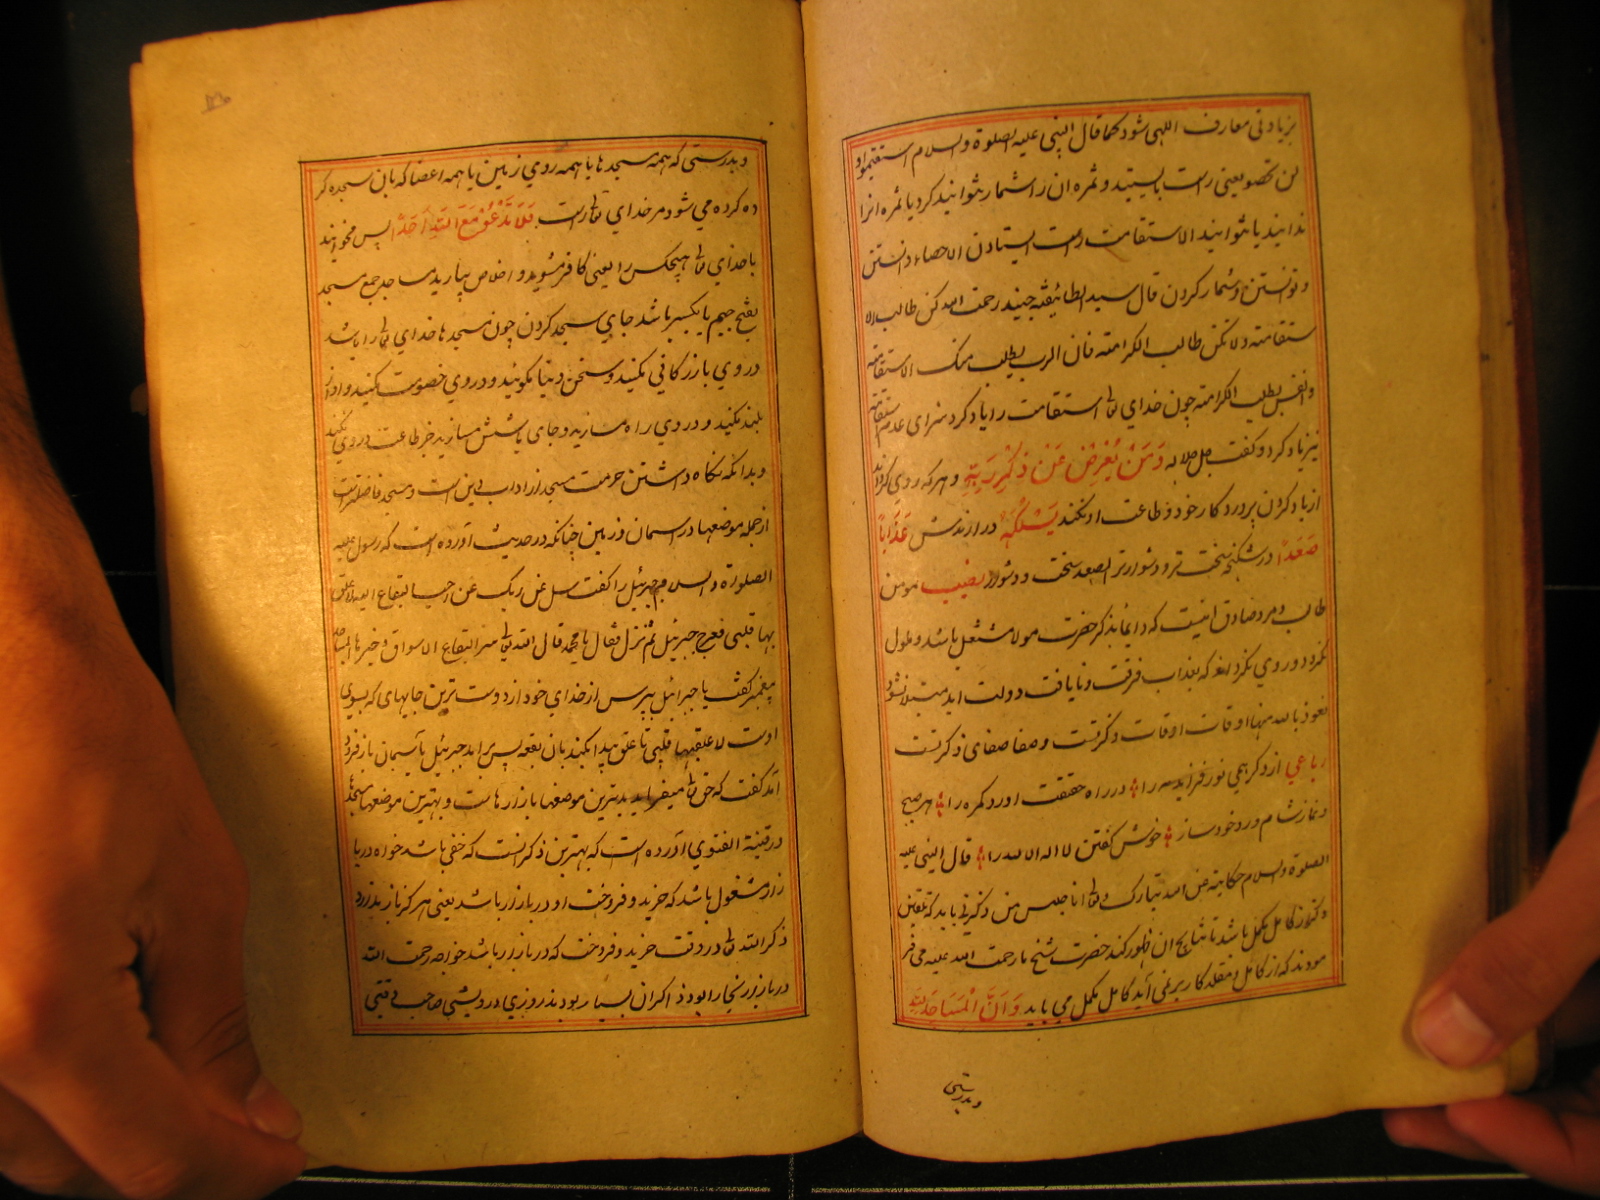 بزیادتی معارف اللهی شود کما قال النبی علیه الصلوة والسلام استقیموا و
لن تحصو یعنی راست بایستید و ثمره ان را شمار نتوانید کرد یا ثمره انرا
ندانید یا نتوانید الاستقامت راست ایستادن الاحصاء دانستن
و توانستن و شمار کردن قال سید الطائفة جنید رحمت الله کن طالب الا
ستقامته ولا تکن طالب الکرامته فان الرب یطلب منک الاستقامته
والنفس یطلب الکرامته چون خدای تعالی استقامت را یاد کرد سزای عدم استقامته
نیز یاد کرد و گفت جل جلاله وَمَنْ یُعْرِضْ عَنْ ذِکْرِ رَبِّهِ و هر که روی گرداند
از یاد کردن پروردکار خود و طاعت او نکند یَسْلُکْهُ در ارندش عَذَاباً
صَعَداً در شکنجه سخت تر و دشوارتر الصعد سخت و دشوار نصیب مومن
طالب و مرد صادق انیست که دایما بذکر حضرت مولا مشتغل باشد و ملول
نکردد و روی نکرداند که بعذاب فرقت و نایافت دولت ابد مبتلا نشود
نعوذ بالله منها اوقات اوقات ذکرتست و صفا صفای ذکرتست
رباعی از ذکر همی نور فزاید مه را در راه حقیقت اورد کمره را هر صبح
و نماز شام ورد خود ساز خوش کفتن لا اله الا الله را قال النبی علیه
الصلوة والسلام حکایته عن الله تبارک و تعالی انا جلیس من ذکرنی باید که تلقین
ذکر از کامل مکمل باشد تا نتایج ان ظهور کند حضرت شیخ ما رحمت الله علیه می فر
مودند که از کامل و مقلد کار بر نمی آید کامل مکمل می باید وَاَنَّ الْمَسَاجِدَ لِلّهِ
و بدرستی
و بدرستی که همه مسجدها یا همه روی زمین یا همه اعضا که بان سجده کر
ده کرده می شود مر خدای تعالی راست فَلَا تَدْعُوْ مَعَ اللّهِ اَحَدًا پس مخوانید
با خدای تعالی هیچکس را یعنی کافر مشوید و اخلاص بیارید مساجد جمع مسجد
بفتح جیم یا بکسر باشد جای سجد کردن چون مسجدها خدای تعالی را باشد
در وی بازرکانی مکنید و سخن دنیا مکوئید و در وی خصومت مکنید و اواز
بلند مکنید و در وی راه مسازید و جای باشش مسازید جز طاعت در وی مکنید
و بدانکه نکاه داشتن حرمت مسجد از اداب دین است و مسجد فاضلترست
از جمله موضعها در اسمان و زمین چنانکه در حدیث آورده است که رسول علیه
الصلوة والسلام جبرئیل را کفت سل عن ربک عن احب البقاع الیه
بها قلبی فعرج جبرئیل ثم نزل فقال یا محمد قال الله تعالی شر البقاع الاسواق و خیرها المساجد
پیغمبر کفت یا جبرائیل بپرس از خدای خود از دوست ترین جایهای که بسوی
اوست لا علقها قلبی تا علق پیدا بکند بان بقعه پس برامد جبرئیل بآسمان باز فرود
آمد کفت که حق تعالی میفرماید بدترین موضعها بازارهاست و بهترین موضعها مسجدها
در قنیة الفتوی آورده است که بهترین ذکر انست که خفی باشد خواه در با
زار مشغول باشد که خرید و فروخت او در بازار باشد یعنی هر کز باز ندارد
ذکر الله تعالی در وقت خرید و فروخت که در بازار باشد خواجه رحمت الله
در بازار بخارا بود ذاکران بسیار بودند روزی درویشی صاحب وقتی